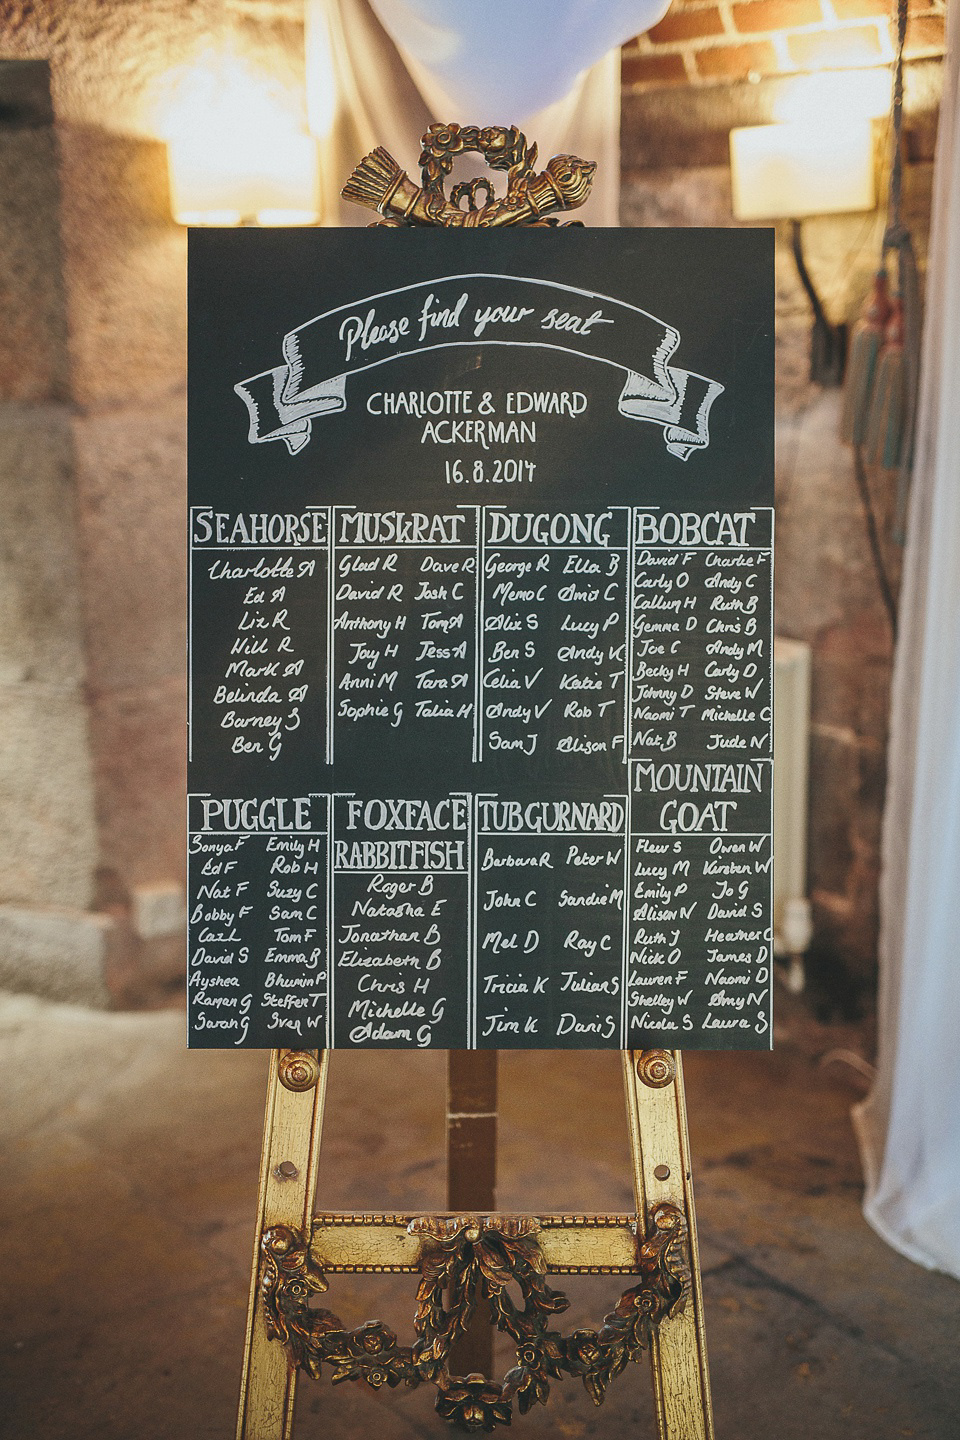 Please find your seat
CHARLOTTE & EDWARD
ACKERMAN
16.8.2014
SEAHORSE
Charlotte A
Ed A
Liz R
Will R
Mark A
Belinda A
Barney S
Ben G
MUSKRAT
Glad R Dave R
David R Josh C
Anthony H Tom A
Jay H Jess A
Anni M Tara A
Sophie G Talia H
DUGONG
George R Ella B
Memo C Amit C
Alix S Lucy P
Ben S Andy K
Celia V Katie T
Andy V Rob T
Sam J Alison F
BOBCAT
David F Charlie F
Carly O Andy C
Callum H Ruth B
Gemma D Chris B
Joe C Andy M
Becky H Carly D
Johnny D Steve W
Naomi T Michelle C
Nat B Jude N
PUGGLE
Sonya F Emily H
Ed F Rob H
Nat F Suzy C
Bobby F Sam C
Caz L Tom F
David S Emma B
Ayshea Bhumin P
Raman G Steffen T
Sarah G Sven W
FOXFACE
RABBITFISH
Roger B
Natasha E
Jonathan B
Elizabeth B
Chris H
Michelle G
Adam G
TUBGURNARD
Barbara R Peter W
John C Sandie M
Mel D Ray C
Tricia K Julian S
Jim K Dani S
MOUNTAIN
GOAT
Fleur S Owen W
Lucy M Kirsten W
Emily P Jo G
Alison N David S
Ruth J Heather C
Nick O James D
Lauren F Naomi D
Shelley W Amy N
Nicola S Laura S